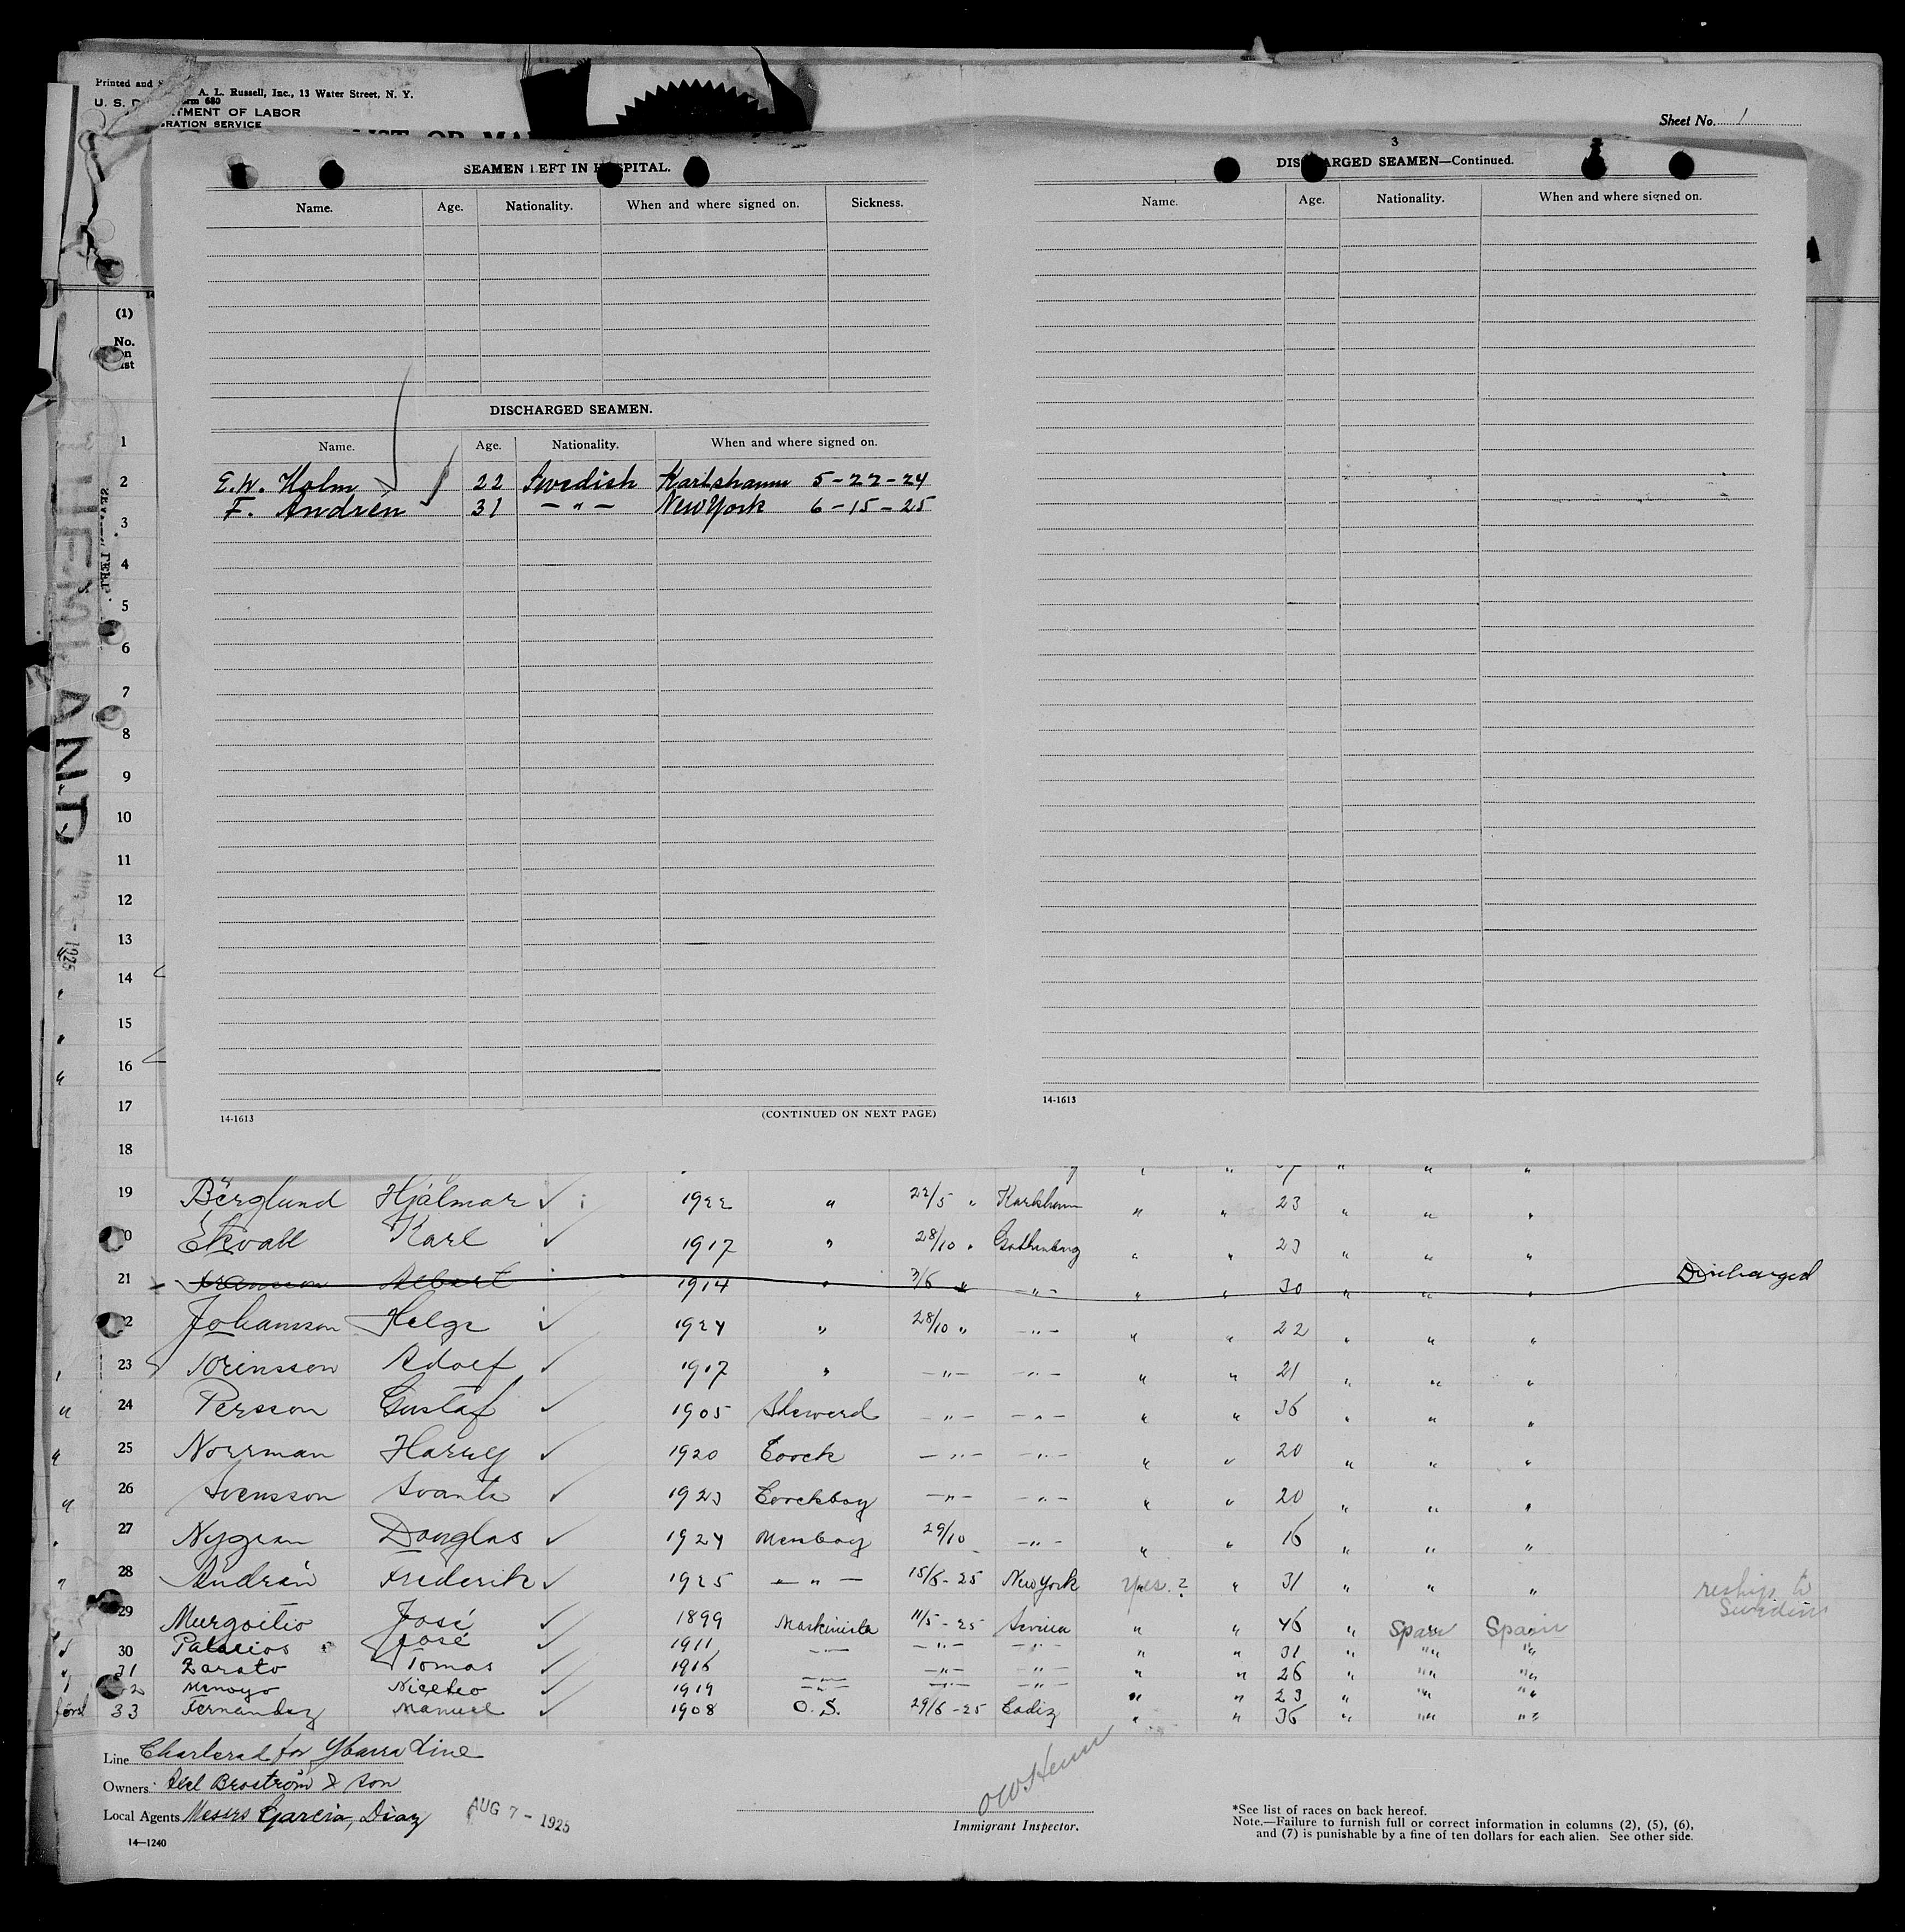 Printed and A. L. Russell, Inc., 13 Water Street, N. Y.
U. S. D rm 680
TMENT OF LABOR
RATION SERVICE
Sheet No. 1
3
SEAMEN LEFT IN HOSPITAL.
Name. Age. Nationality. When and where signed on. Sickness.
DISCHARGED SEAMEN.
Name. Age. Nationality. When and where signed on.
E.W. Holm 22 Swedish Karlshamn 5-22-24
F. Andrén 31 — " — New York 6-15-25
14-1613
(CONTINUED ON NEXT PAGE)
DISCHARGED SEAMEN—Continued.
Name. Age. Nationality. When and where signed on.
14-1613
(1)
No.
1
2
3
4
5
6
7
8
9
10
11
12
13
14
15
16
17
18
19 Berglund Hjalmar 1922 " 22/5 " Karlshamn " " 23 " " "
Ekvall Karl 1917 " 28/10 " Gothenburg " " 23 " " "
21 Albert 1914 " 3/6 " — " — " " 30 " " " Discharged
Johansson Helge 1924 " 28/10 " — " — " " 22 " " "
23 Adolf 1917 " — " — — " — " " 21 " " "
24 Persson Gustaf 1905 Steward — " — — " — " " 36 " " "
25 Norrman Harry 1920 Coock — " — — " — " " 20 " " "
26 Svensson Svante 1923 Coockboy — " — — " — " " 20 " " "
27 Nygren Douglas 1924 Messboy 29/10 — " — " " 16 " " "
28 Andrén Frederik 1925 — " — 15/6-25 New York yes.? " 31 " " " reships to Sweden
29 Murgoitio José 1899 Maskinista 11/5-25 " " 46 " Spain Spain
30 Palacios José 1911 — — " — — " — " " 31 " " "
31 Zarato Tomas 1916 — " — — " — — " — " " 26 " " "
Menoyo Niceteo 1919 — " — — " — — " — " " 23 " " "
33 Fernandez Manuel 1908 O.S. 29/6-25 Cadiz " " 36 " " "
Line Chartered for Ybarra Line
Owners Axel Broström & Son
Local Agents Messrs Garcia, Diaz
AUG 7 - 1925
14—1240
Immigrant Inspector.
*See list of races on back hereof.
Note.—Failure to furnish full or correct information in columns (2), (5), (6),
and (7) is punishable by a fine of ten dollars for each alien. See other side.